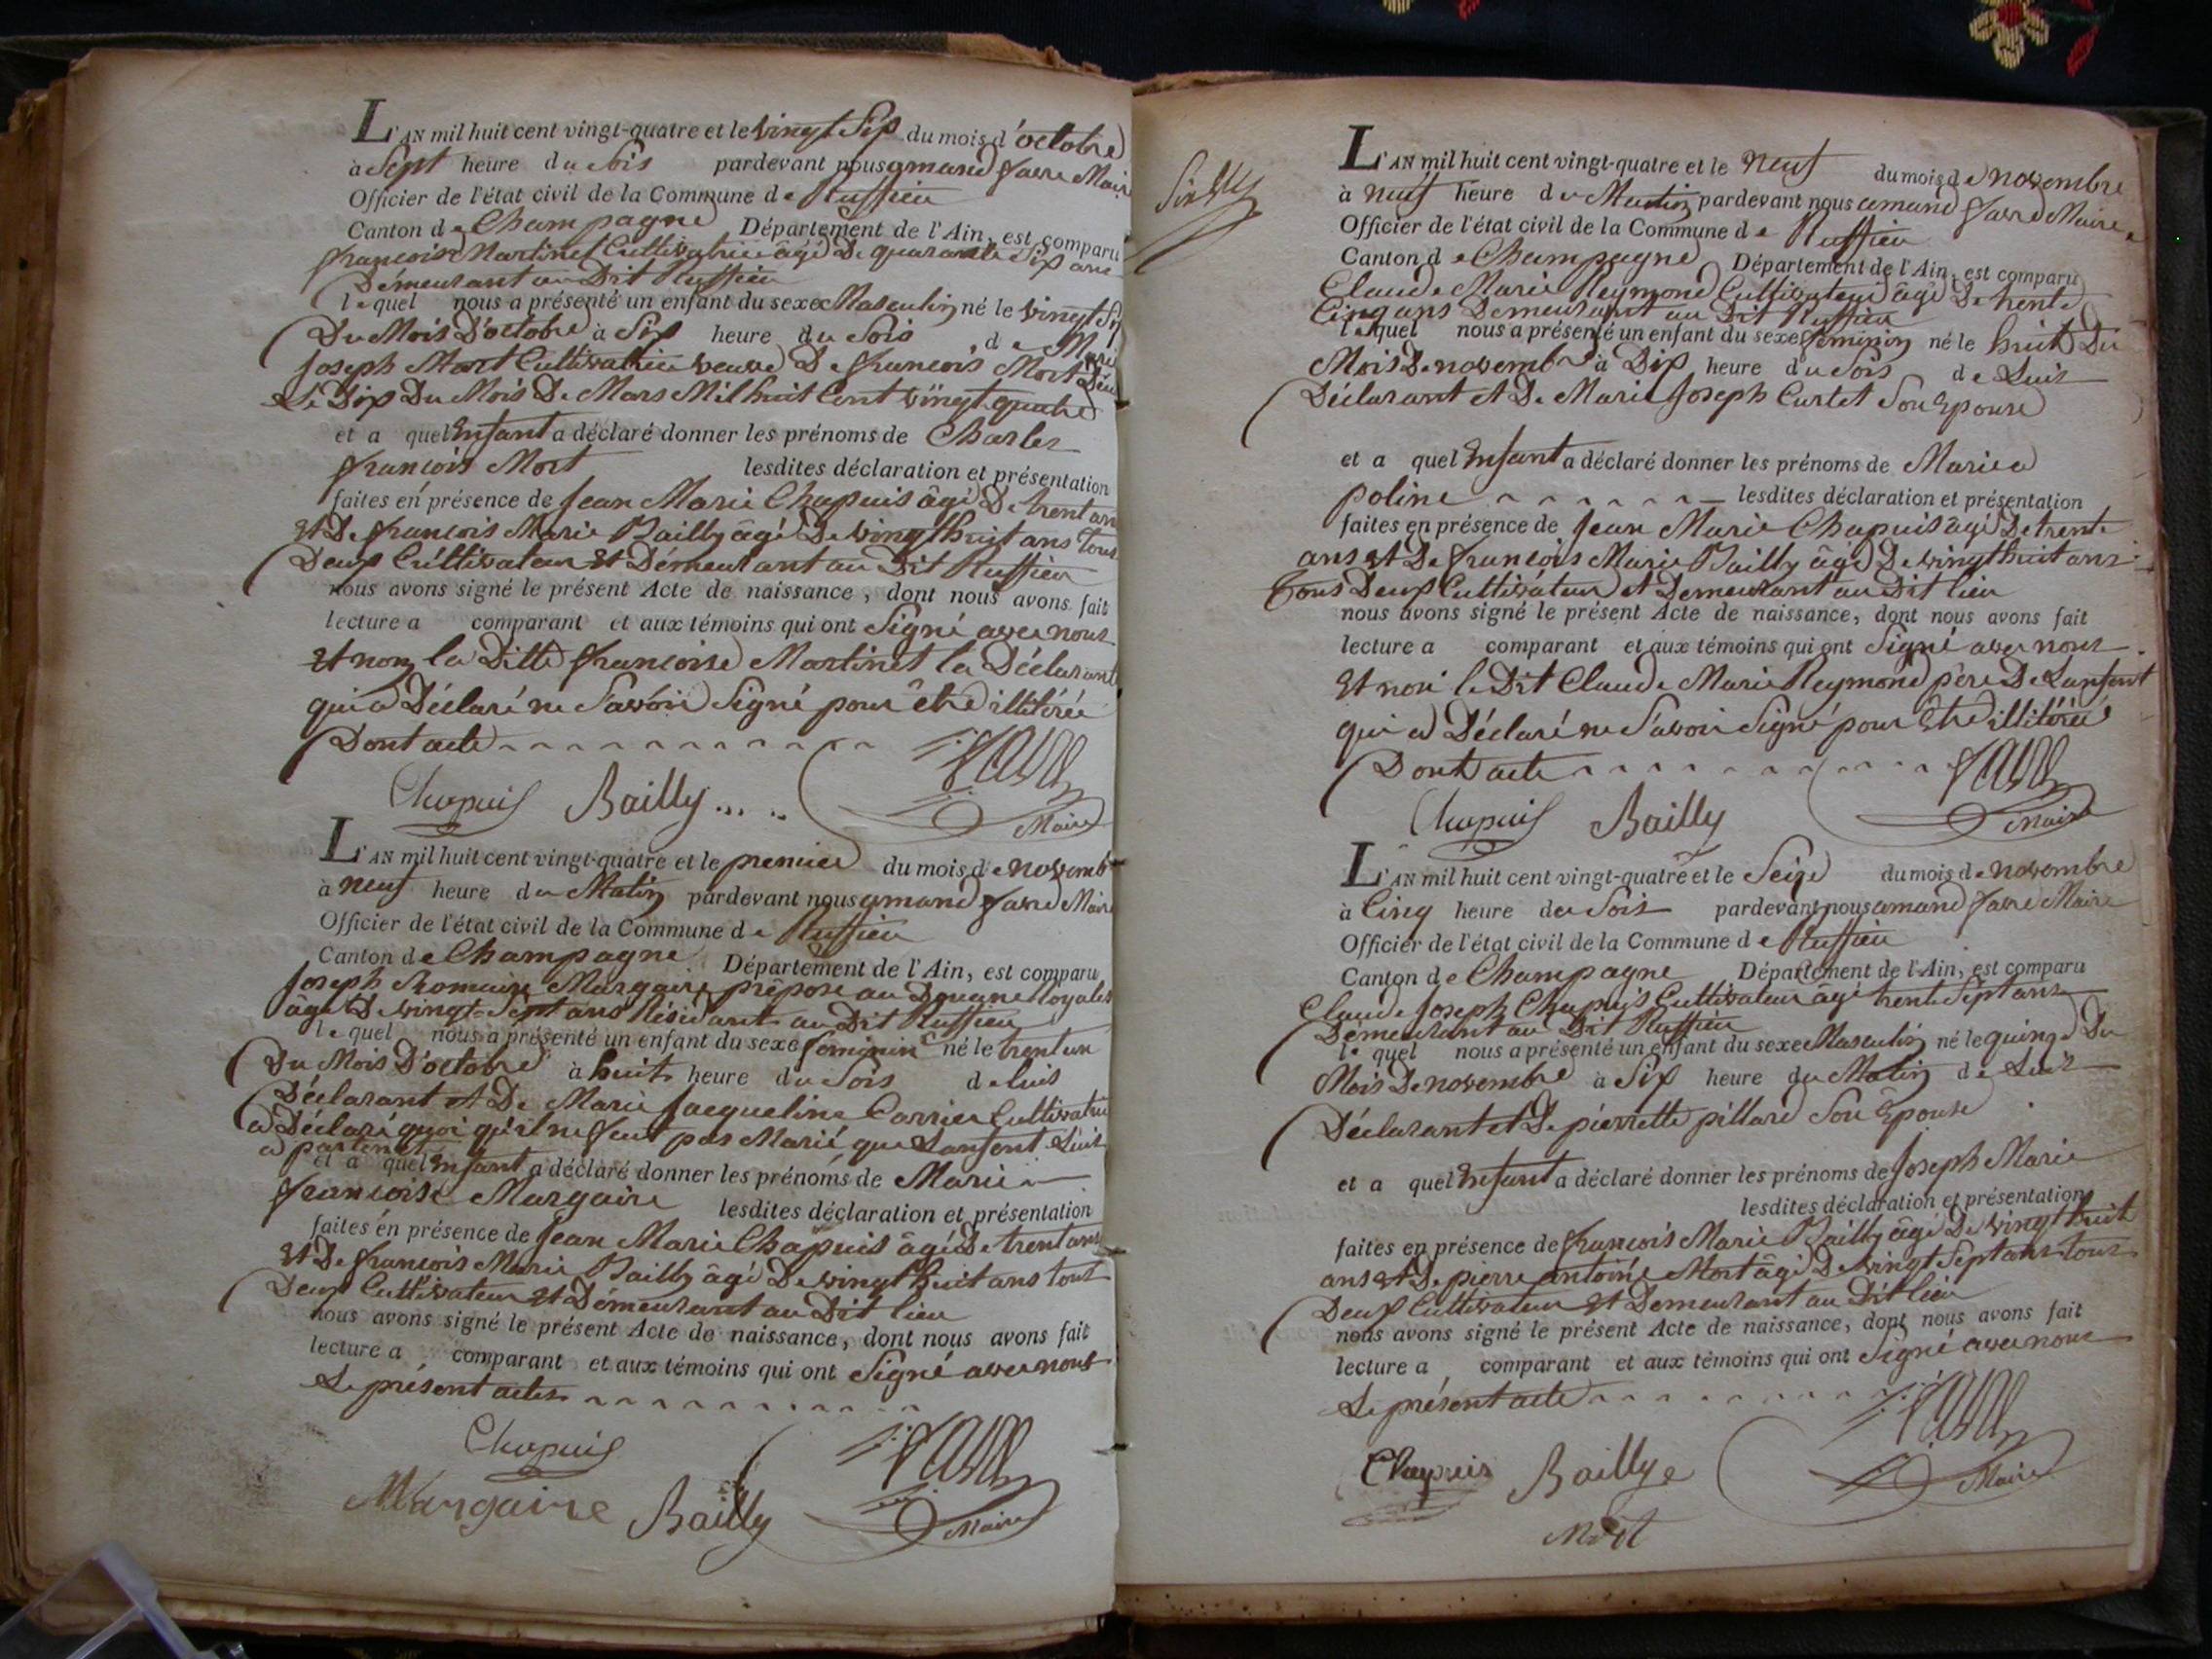 L'AN mil huit cent vingt-quatre et le vingt Six du mois d'octobre
à Sept heure du Soir pardevant nous amand favre Maire
Officier de l'état civil de la Commune de Ruffieu
Canton de Champagne Département de l'Ain, est comparu
françoise Martinet Cultivatrice âgé De quarante Six ans
Démeurant au Dit Ruffieu
lequel nous a présenté un enfant du sexe Masculin né le vingt Six
Du Mois D'octobre à Six heure du Soir, de Marie
Joseph Mort Cultivatrice veuve De françois Mort
Le Dix Du Mois De Mars Mil huit Cent vingt quatre
et a quel Enfant a déclaré donner les prénoms de Charles
françois Mort lesdites déclaration et présentation
faites en présence de Jean Marie Chapuis âgé De trent ans
Et De françois Marie Bailly âgé De vingt huit ans tous
Deux Cultivateur Et Démeurant au Dit Ruffieu
nous avons signé le présent Acte de naissance, dont nous avons fait
lecture a comparant et aux témoins qui ont Signé avec nous
Et non la Ditte françoise Martinet la Déclarant
qui a Déclaré ne Savoir Signé pour être illitérée
Dont acte
Chapuis Bailly favre
Maire
L'AN mil huit cent vingt-quatre et le premier du mois de novemb
à neuf heure du Matin pardevant nous amand favre Maire
Officier de l'état civil de la Commune de Ruffieu
Canton de Champagne Département de l'Ain, est comparu
Joseph Romain Margaire préposé au Douane Royales
âgé De vingt-Sept ans Résidant au Dit Ruffieu
lequel nous a présenté un enfant du sexe feminin né le trent un
Du Mois D'octobre à huit heure du Soir de luis
Déclarant et De Marie Jacqueline Carrier Cultivatrice
a Déclaré quoi qu'il ne feut pas Marié, que Lanfent Luis
a partenet
et a quel Enfant a déclaré donner les prénoms de Marie
françoise Margaire lesdites déclaration et présentation
faites en présence de Jean Marie Chapuis âgé De trent ans
Et De françois Marie Bailly âgé De vingt huit ans tous
Deux Cultivateur Et Démeurant au Dit lieu
nous avons signé le présent Acte de naissance, dont nous avons fait
lecture a comparant et aux témoins qui ont Signé avec nous
Le présent actes
Chapuis favre
Margaire Bailly Maire
L'AN mil huit cent vingt-quatre et le neuf du mois de novembre
à neuf heure du Matin pardevant nous amand favre Maire
Officier de l'état civil de la Commune de Ruffieu
Canton de Champagne Département de l'Ain, est comparu
Claude Marie Reymond Cultivateur âgé De trente
Cinq ans Demeurant au Dit Ruffieu
lequel nous a présenté un enfant du sexe feminin né le huit Du
Mois De novembre à Dix heure du Soir de Luis
Déclarant et De Marie Joseph Curtet Son Epouse
et a quel Enfant a déclaré donner les prénoms de Marie
poline lesdites déclaration et présentation
faites en présence de Jean Marie Chapuis âgé De trente
ans et De françois Marie Bailly âgé De vingt huit ans
Tous Deux Cultivateur et Demeurant au Dit lieu
nous avons signé le présent Acte de naissance, dont nous avons fait
lecture a comparant et aux témoins qui ont Signé avec nous
Et non le Dit Claude Marie Reymond père De Lanfent
qui a Déclaré ne Savoir Signé pour Etre illitérée
Dont acte favre
Chapuis Bailly Maire
L'AN mil huit cent vingt-quatre et le Seize du mois de novembre
à Cinq heure du Soir pardevant nous amand favre Maire
Officier de l'état civil de la Commune de Ruffieu
Canton de Champagne Département de l'Ain, est comparu
Claude Joseph Chapuis Cultivateur âgé trente Sept ans
Démeurant au Dit Ruffieu
lequel nous a présenté un enfant du sexe Masculin né le quinze Du
Mois De novembre à Six heure du Matin de Luis
Déclarant et De pierrette pillard Son Epouse
et a quel Enfant a déclaré donner les prénoms de Joseph Marie
lesdites déclaration et présentation
faites en présence de françois Marie Bailly âgé De vingt huit
ans et De pierre antoine Mort âgé De vingt Sept ans tous
Deux Cultivateur Et Demeurant au Dit lieu
nous avons signé le présent Acte de naissance, dont nous avons fait
lecture a comparant et aux témoins qui ont Signé avec nous
Le présent acte favre
Chapuis Bailly Maire
Mort